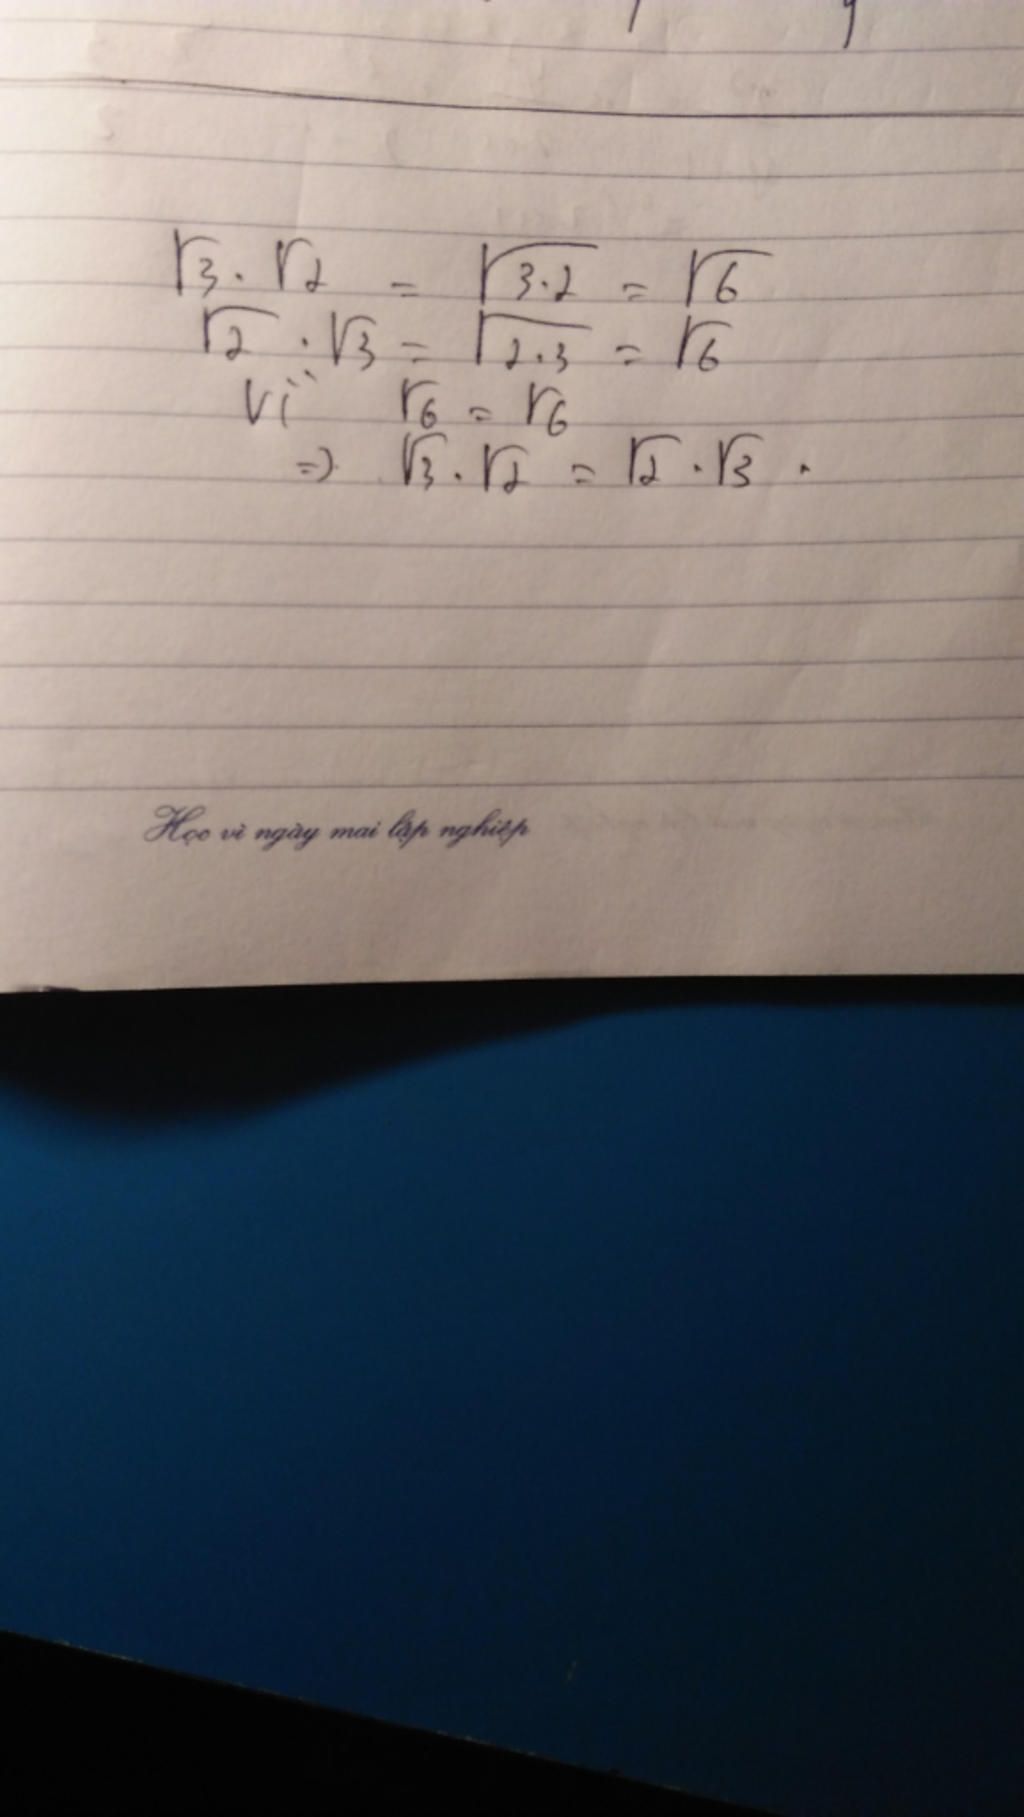 √3 . √2 = √3.2 = √6
√2 . √3 = √2.3 = √6
Vì √6 = √6
=> √3 . √2 = √2 . √3 .
Học vì ngày mai lập nghiệp